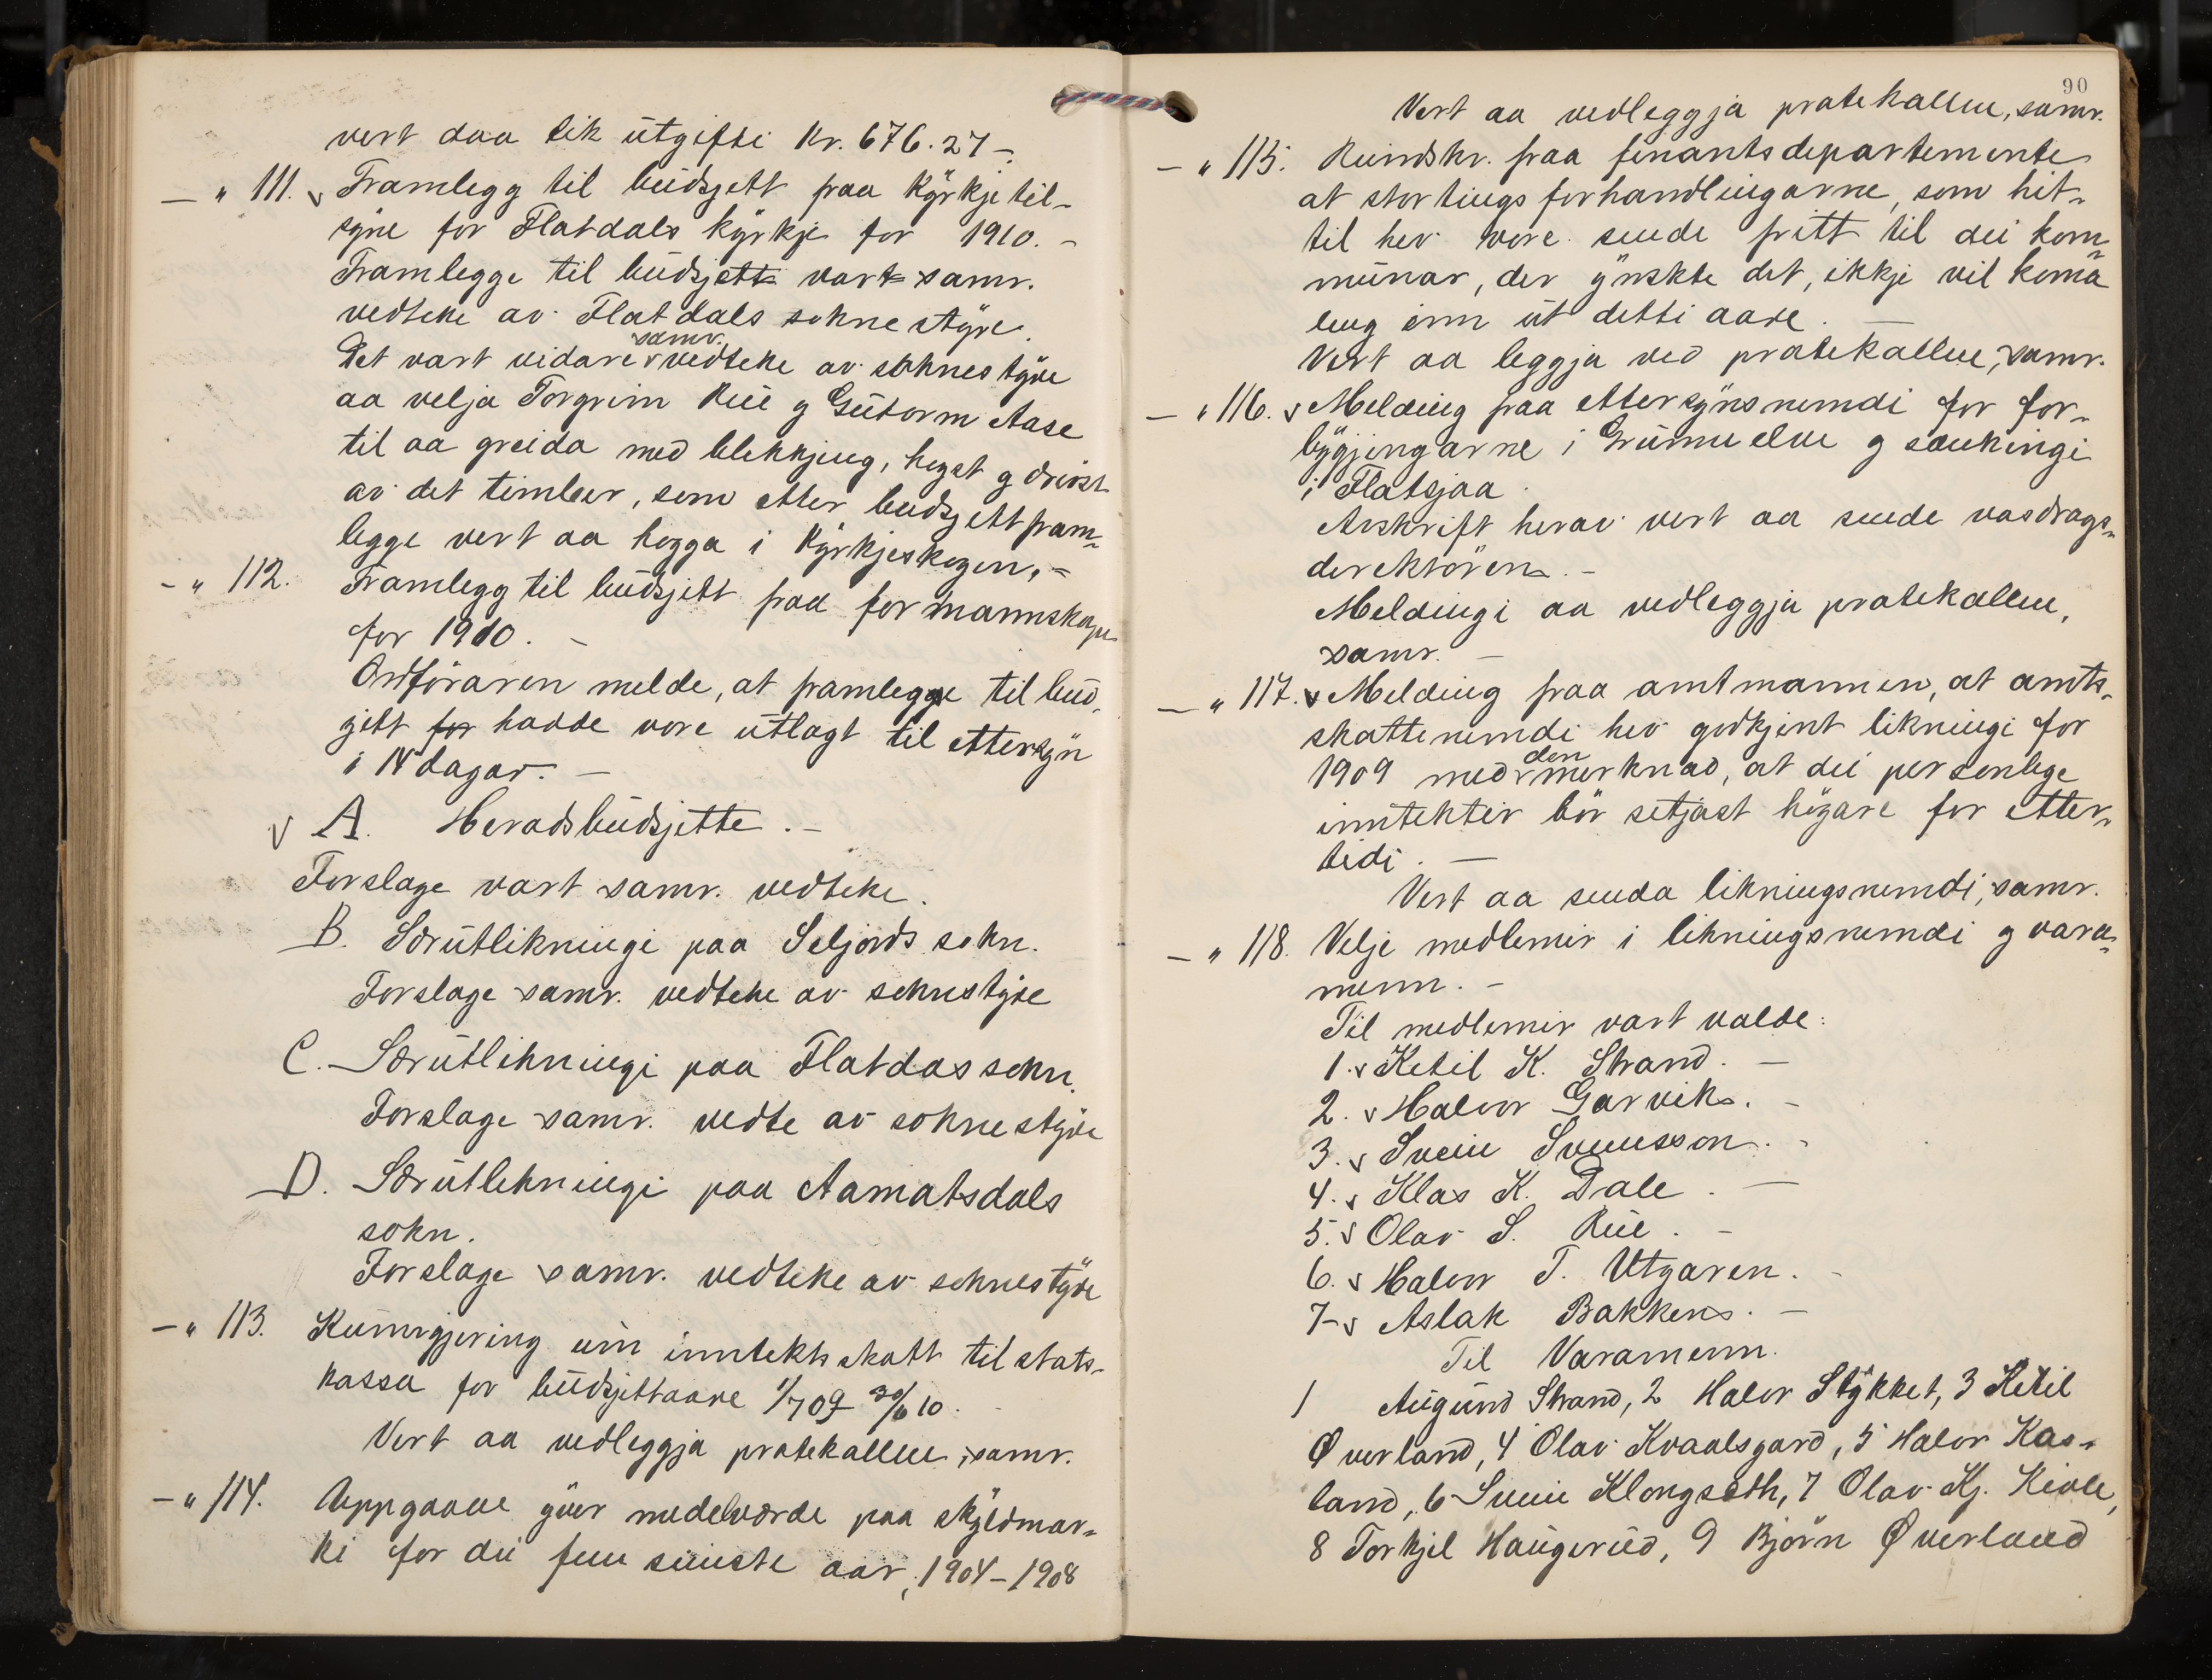 vert daa lik utgifti Kr. 676.27 -
- " 111. v Framlegg til budsjett fraa Kyrkjetil-
syne for Flatdals kyrkje for 1910. -
Framlegge til budsjett vart samr.
vedteke av Flatdals sokne styre.
Det vart vidare samr. vedteke av soknestyre
aa velja Torgrim Rue g Gutorm Aase
til aa greida med blekkjing, hogst g drivst
av det timber, som etter budsjettfram-
legge vert aa hogga i Kyrkjeskogen. -
- " 112. Framlegg til budsjett fraa formannskape
for 1910. -
Ordföraren melde, at framlegge til bud-
jett for hadde vore utlagt til ettersyn
i 14 dagar. -
v A. Heradsbudsjette. -
Forslage vart samr. vedteke.
B. Særutlikningi paa Seljords sokn.
Forslage samr. vedteke av soknestyre
C. Særutlikningi paa Flatdas sokn.
Forslage samr. vedte av soknestyre
D. Særutlikningi paa Aamatsdals
sokn.
Forslage samr. vedteke av soknestyre
- " 113. Kunngjering um inntektsskatt til stats-
kassa for budsjettaare 1/7 09 30/6 10.
Vert aa vedleggja protekallen, samr.
- " 114. Uppgaave yver medelværde paa skyldmar-
ki for dei fem siuste aar, 1904-1908
90
Vert aa vedleggja protekallen, samr.
- " 115. Rundskr. fraa finantsdepartemente
at stortings forhandlingarne, som hit-
til hev vore sende fritt til dei kom-
munar, der ynskte det, ikkje vil koma
leng enn ut detti aare. -
Vert aa leggja ved protekallen, samr.
- " 116. v Melding fraa ettersynsnemdi for for-
bygjingarne i Grunnuelve g sænkingi
i Flatsjaa.
Avskrift herav vert aa sende vasdrags-
direktören. -
Meldingi aa vedleggja protekallen,
samr. -
- " 117. v Melding fraa amtmannen, at amts-
skattenemdi hev godkjent likningi for
1909 med den merknad, at dei personlege
inntekter bör setjast högare for etter-
tidi. -
Vert aa senda likningsnemdi, samr.
- " 118. Velje medlemir i likningsnemdi g vara-
menn. -
Til medlemir vart valde:
1. v Ketil K. Strand. -
2. v Halvor Garvik. -
3. v Svein Svensson. -
4. v Klas K. Dale. -
5. v Olav S. Rue. -
6. v Halvor T. Utgaren. -
7 - v Aslak Bakken. -
Til Varamenn.
1 Augund Strand, 2 Halvor Stykket, 3 Ketil
Øverland, 4 Olav Kvaalsgard, 5 Halvor Kas-
land, 6 Svein Klongseth, 7 Olav Kj. Kivle,
8 Torkjel Haugerud, 9 Björn Øverland